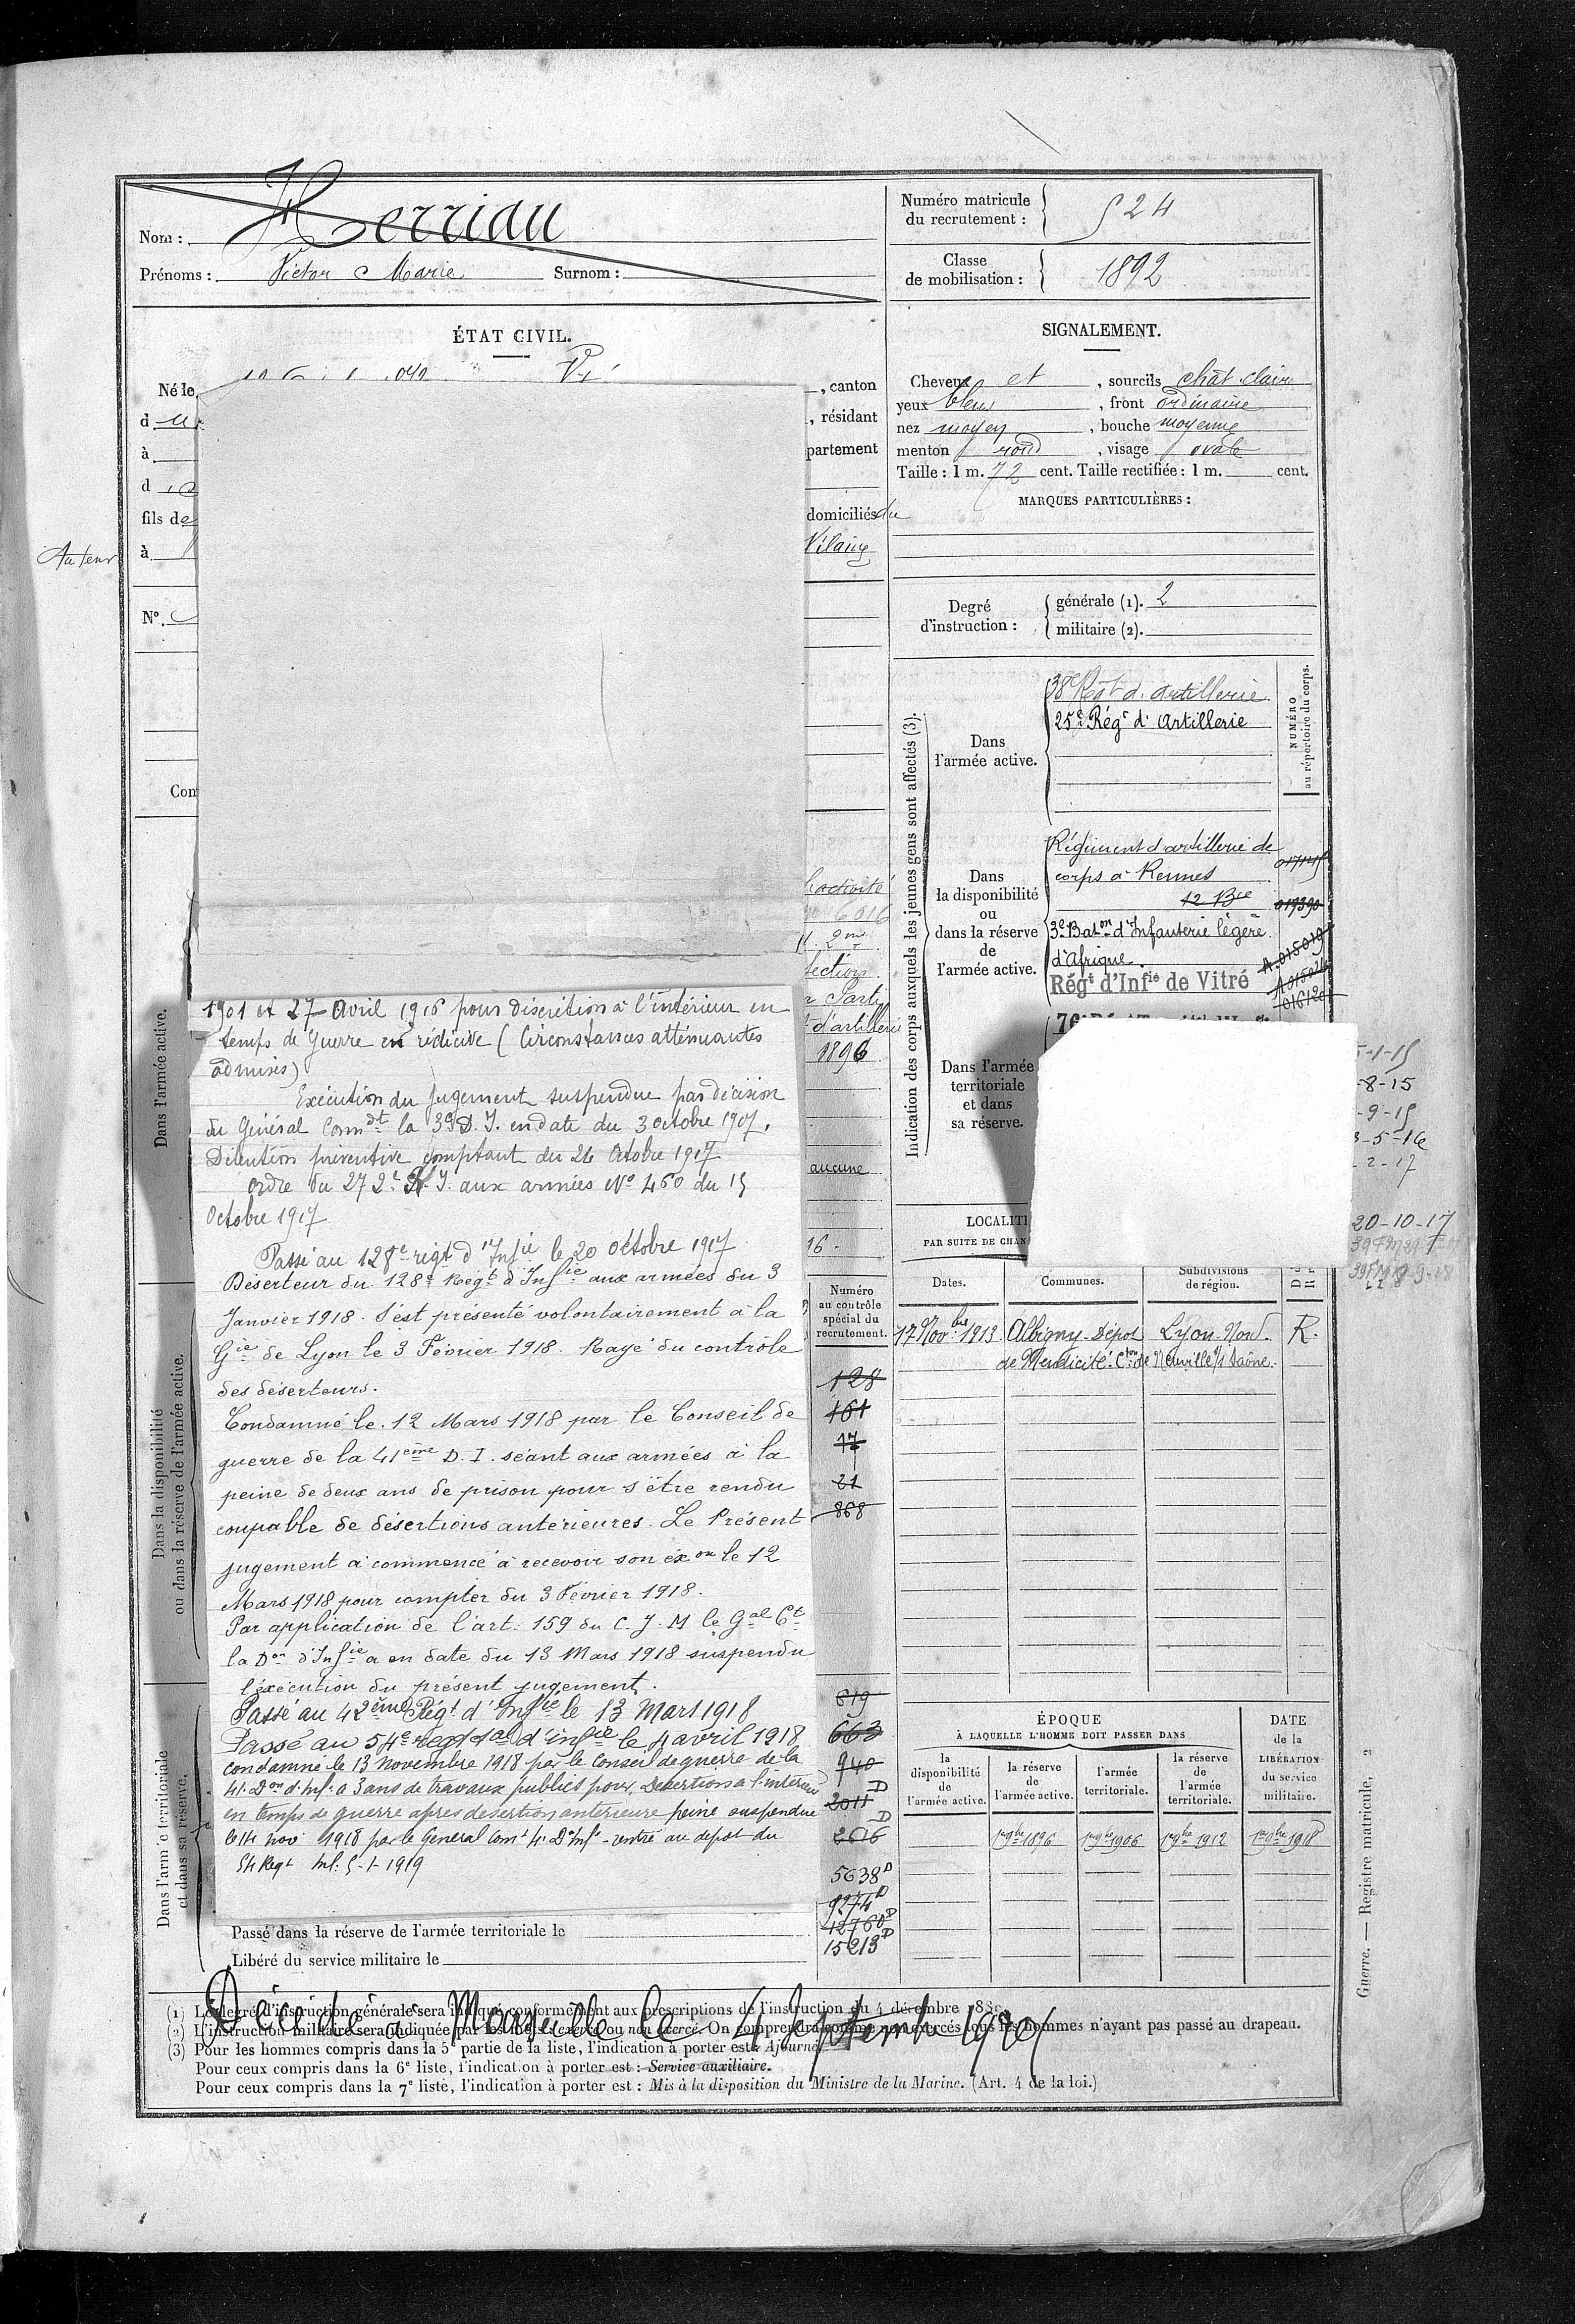 Nom : Herriau
Prénoms : Victor Marie Surnom :
Numéro matricule
du recrutement :
524
Classe
de mobilisation :
1892
ÉTAT CIVIL.
Né le
, canton
d
, résidant
à
partement
d
fils de
domiciliés du
à
Vilaine
Nº.
Con
Au tenr
SIGNALEMENT.
Cheveux et , sourcils chât. clair
yeux bleus , front ordinaire
nez moyen , bouche moyenne
menton rond , visage ovale
Taille : 1 m. 72 cent. Taille rectifiée : 1 m. cent.
MARQUES PARTICULIÈRES :
Degré
d'instruction :
générale (1). 2
militaire (2).
Indication des corps auxquels les jeunes gens sont affectés (3).
NUMÉRO
au répertoire du corps.
Dans
l'armée active.
38e Régt d'artillerie
25e Régt d'Artillerie
Dans
la disponibilité
ou
dans la réserve
de
l'armée active.
Régiment d'artillerie de
corps à Rennes
12 Bie
3e Baton d'Infanterie légère
d'Afrique.
Régt d'Infie de Vitré
017145
019390
A.015019
016120
Dans l'armée
territoriale
et dans
sa réserve.
76
l'activité
6016
2me
section
Parti
d'artillerie
1896
aucune
16.
5-1-15
-8-15
-9-15
3-5-16
-2-17
20-10-17
Dans l'armée active.
1901 et 27 Avril 1916 pour désertion à l'intérieur en
temps de Guerre en récidive (Circonstances atténuantes
admises)
Exécution du jugement suspendue par décision
du Général Commdt la 39e D.I. en date du 3 octobre 1907.
Détention préventive comptant du 26 Octobre 1917
Ordre du 272e R.I. aux armées Nº 460 du 15
Octobre 1917
Passé au 128e régt d'Infie le 20 octobre 1917
Déserteur du 128e Régt d'Infie aux armées du 3
Janvier 1918. S'est présenté volontairement à la
Gie de Lyon le 3 Février 1918. Rayé du contrôle
des déserteurs.
Condamné le 12 Mars 1918 par le Conseil de
guerre de la 41ème D.I. séant aux armées à la
peine de deux ans de prison pour s'être rendu
coupable de désertions antérieures. Le Présent
jugement a commencé à recevoir son exon le 12
Mars 1918 pour compter du 3 Février 1918.
Par application de l'art. 159 du C.J.M le Gal Ct
la Don d'Infie a en date du 13 Mars 1918 suspendu
l'éxécution du présent jugement.
Passé au 42ème Régt d'Infie le 13 Mars 1918
Passé au 54e régt d'infie le 4 avril 1918
condamné le 13 novembre 1918 par le Conseil de guerre de la
41 Don d'Inf. a 3 ans de travaux publics pour, Desertion a l'interieur
en temps de guerre apres desertion anterieure peine suspendue
le 14 nov 1918 par le General Comt 41 Don Infie - rentré au depot du
54 Regt Inf. 5-1-1919
Dans la disponibilité
ou dans la réserve de l'armée active.
Dans l'armée territoriale
et dans sa réserve.
Passé dans la réserve de l'armée territoriale le
Libéré du service militaire le
Numéro
au contrôle
spécial du
recrutement.
128
161
17
21
868
619
663
940
2011 D
2616 D
5638 D
9274 D
42760 D
15213 D
LOCALITÉ
PAR SUITE DE CHAN
Dates.
Communes.
Subdivisions
de région.
17 Novbre 1913 Albigny-Dépôt Lyon-Nord. R.
de Mendicité. Cton de Neuville s/ Saône.
ÉPOQUE
À LAQUELLE L'HOMME DOIT PASSER DANS
la
disponibilité
de
l'armée active.
la réserve
de
l'armée active.
l'armée
territoriale.
la réserve
de
l'armée
territoriale.
DATE
de la
LIBÉRATION
du service
militaire.
1er 9bre 1896
1er 9bre 1906
1er 9bre 1912
1er 9bre 1918
Guerre. — Registre matricule, 2
Décédé à Marseille le 4 Septembre 1929
(1) Le degré d'instruction générale sera indiqué conformément aux prescriptions de l'instruction du 4 décembre 1889.
(2) L'instruction militaire sera indiquée par les mots : exercé ou non exercé. On comprendra comme non exercés tous les hommes n'ayant pas passé au drapeau.
(3) Pour les hommes compris dans la 5e partie de la liste, l'indication à porter est : Ajourné.
Pour ceux compris dans la 6e liste, l'indication à porter est : Service auxiliaire.
Pour ceux compris dans la 7e liste, l'indication à porter est : Mis à la disposition du Ministre de la Marine. (Art. 4 de la loi.)